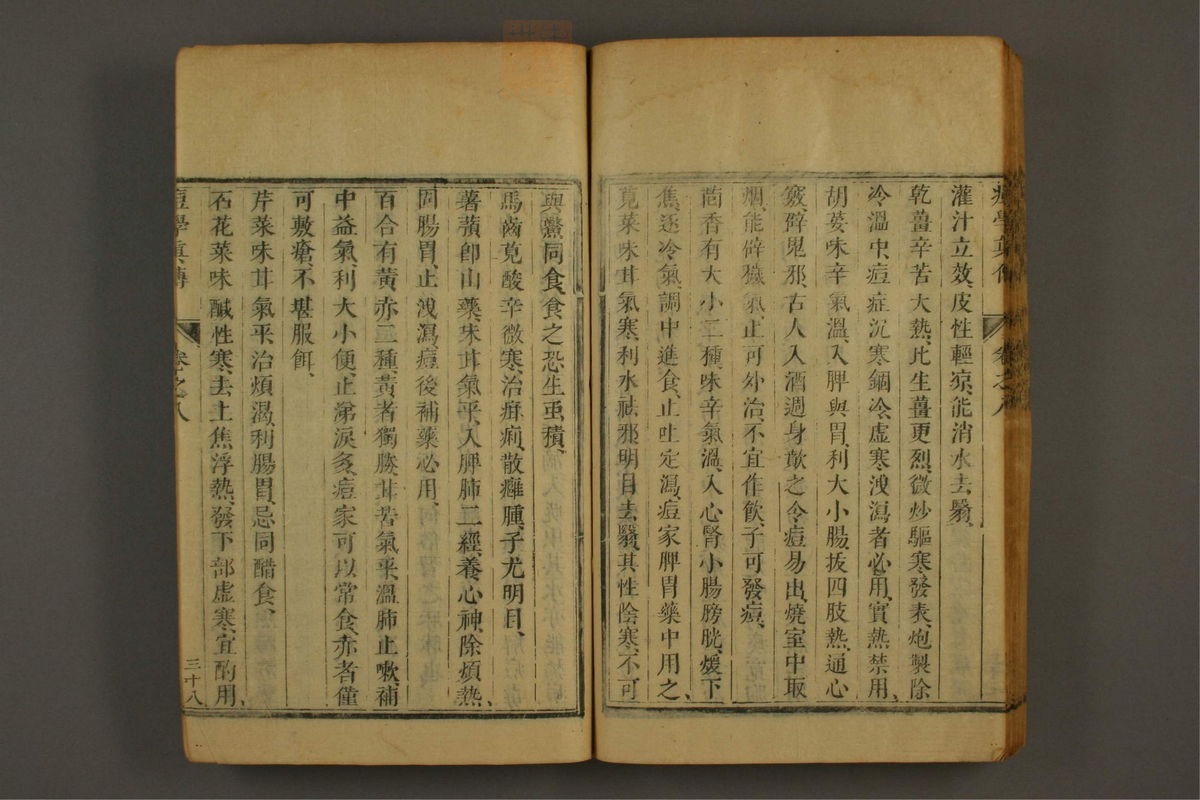 痘學真傳 卷之八
灌汁立效、皮性輕凉、能消水去翳、
乾薑辛苦大熱、比生薑更烈、微炒驅寒發表、炮製除
冷溫中、痘症沉寒錮冷、虛寒洩瀉者必用、實熱禁用、
胡荽味辛氣溫、入脾與胃、利大小腸、拔四肢熱、通心
竅、辟鬼邪、古人入酒週身歕之、令痘易出、燒室中取
烟、能辟穢氣、止可外治、不宜作飲、子可發痘、
茴香有大小二種、味辛氣溫、入心腎小腸膀胱、煖下
焦、逐冷氣、調中進食、止吐定瀉、痘家脾胃藥中用之、
莧菜味甘氣寒、利水祛邪、明目去翳、其性陰寒、不可
與鱉同食、食之恐生䖝積、
馬齒莧酸辛微寒、治痳痢、散癰腫、子尤明目、
薯蕷卽山藥、味甘氣平、入脾肺二經、養心神、除煩熱、
固腸胃、止洩瀉、痘後補藥必用、
百合有黃赤二種、黃者獨勝、甘苦氣平、溫肺止嗽、補
中益氣、利大小便、止涕淚多、痘家可以常食、赤者僅
可敷瘡、不堪服餌、
芹菜味甘氣平、治煩渴、利腸胃、忌同醋食、
石花菜味鹹性寒、去上焦浮熱、發下部虛寒、宜酌用、
痘學眞傳 卷之八 三十八